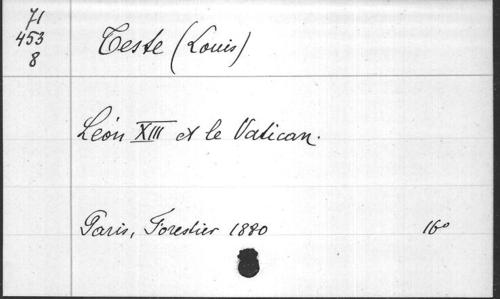 71
453
8
Teste (Louis)
Léon XIII et le Vatican.
Paris, Forestier 1880 16°